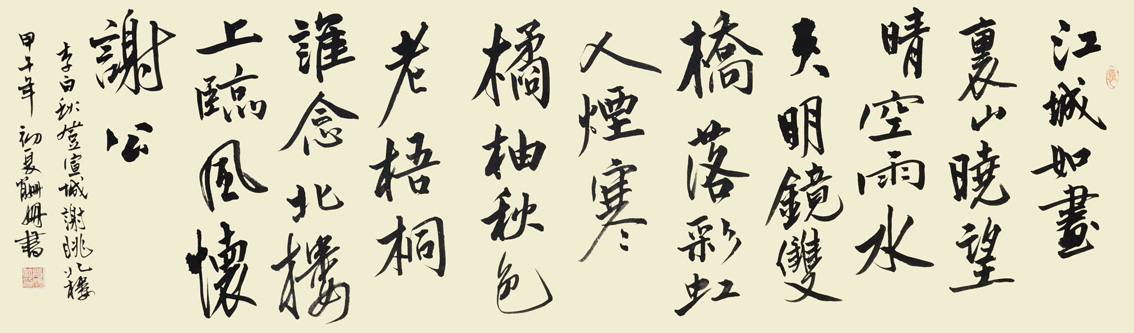 江城如畫
裏山曉望
晴空雨水
夾明鏡雙
橋落彩虹
人煙寒
橘柚秋色
老梧桐
誰念北樓
上臨風懷
謝公
李白秋登宣城謝朓北樓
甲午年初夏書